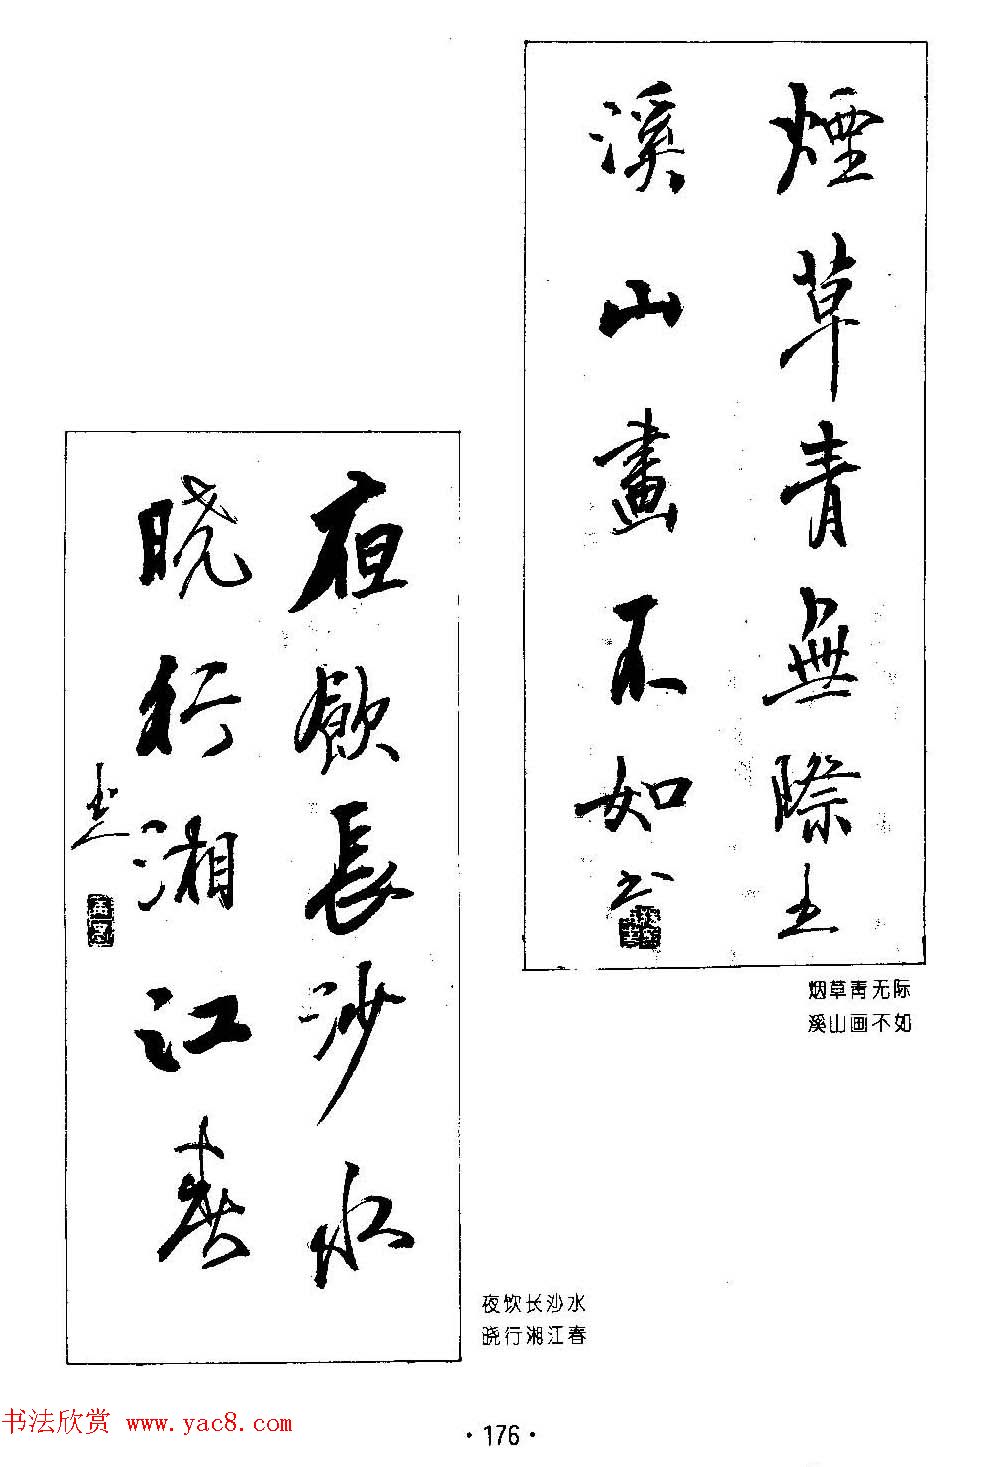 煙草青無際
溪山畫不如
烟草青无际
溪山画不如
夜飲長沙水
晓行湘江春
夜饮长沙水
晓行湘江春
书法欣赏 www.yac8.com
·176·